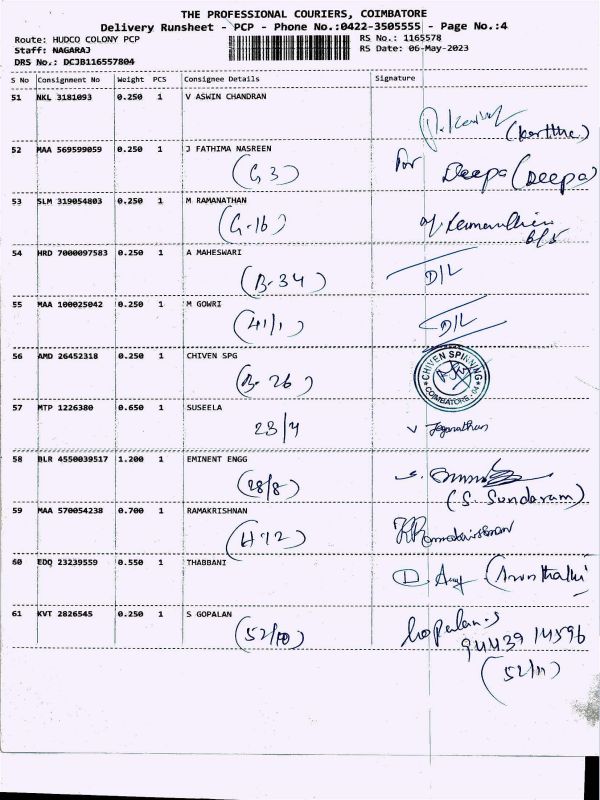 THE PROFESSIONAL COURIERS, COIMBATORE
Delivery Runsheet - PCP - Phone No.:0422-3505555 - Page No.:4
Route: HUDCO COLONY PCP RS No.: 1165578
Staff: NAGARAJ RS Date: 06-May-2023
DRS No.: DCJB116557804
S No Consignment No Weight PCS Consignee Details Signature
51 NKL 3181093 0.250 1 V ASWIN CHANDRAN
52 MAA 569599059 0.250 1 J FATHIMA NASREEN For
(G3) Deepa (Deepa)
53 SLM 319054803 0.250 1 M RAMANATHAN
(G-16)
54 HRD 7000097583 0.250 1 A MAHESWARI
(B-34) D/L
55 MAA 100025042 0.250 1 M GOWRI
(41/1) D/L
56 AMD 26452318 0.250 1 CHIVEN SPG CHIVEN SPINNING
(B-26) COIMBATORE - 04
57 MTP 1226380 0.650 1 SUSEELA
23/4 Jeganathan
58 BLR 4550039517 1.200 1 EMINENT ENGG
(28/8) (S. Sundaram)
59 MAA 570054238 0.700 1 RAMAKRISHNAN
(H12)
60 EDQ 23239559 0.550 1 THABBANI
61 KVT 2826545 0.250 1 S GOPALAN Gopalan.S
(52/10) 94439 14596
(52/11)